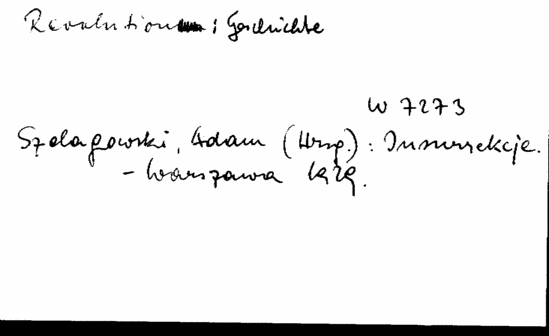 Revolution : Geschichte
W 7273
Szelagowski, Adam (Hrsg.): Insurrekcje.
- Warszawa 1929.